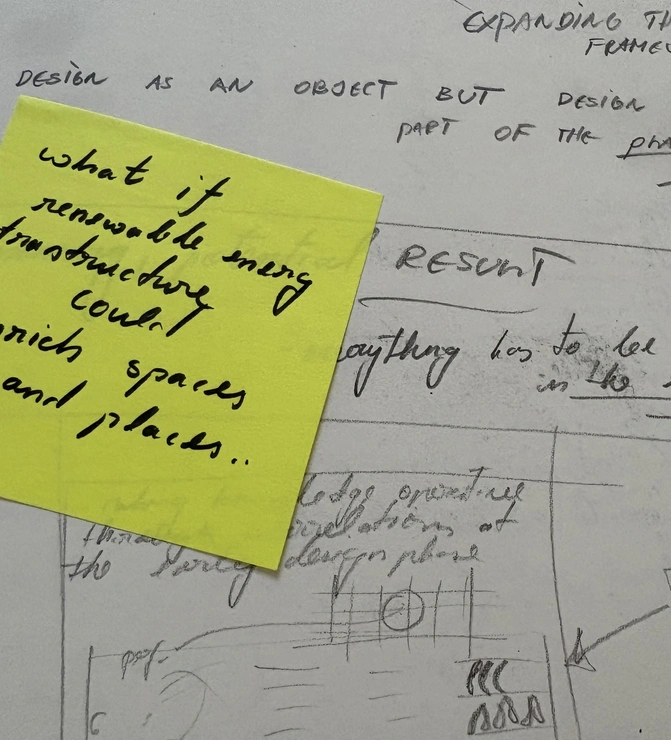 EXPANDING TH
FRAMEW
DESIGN AS AN OBJECT BUT DESIGN
PART OF THE PHA
what if
renewable energy
frastructure
could
nrich spaces
and places..
RESULT
aything has to be
in the
through
the early design phase